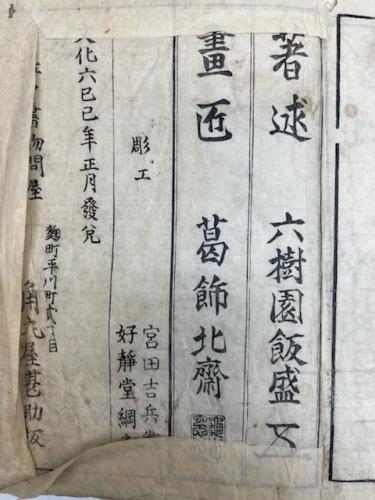 著述 六樹園飯盛
畫匠 葛飾北齋
彫工
宮田吉兵衛
好靜堂綱
化六己巳年正月發兌
麹町平川町貳丁目
書物問屋 角丸屋甚助板